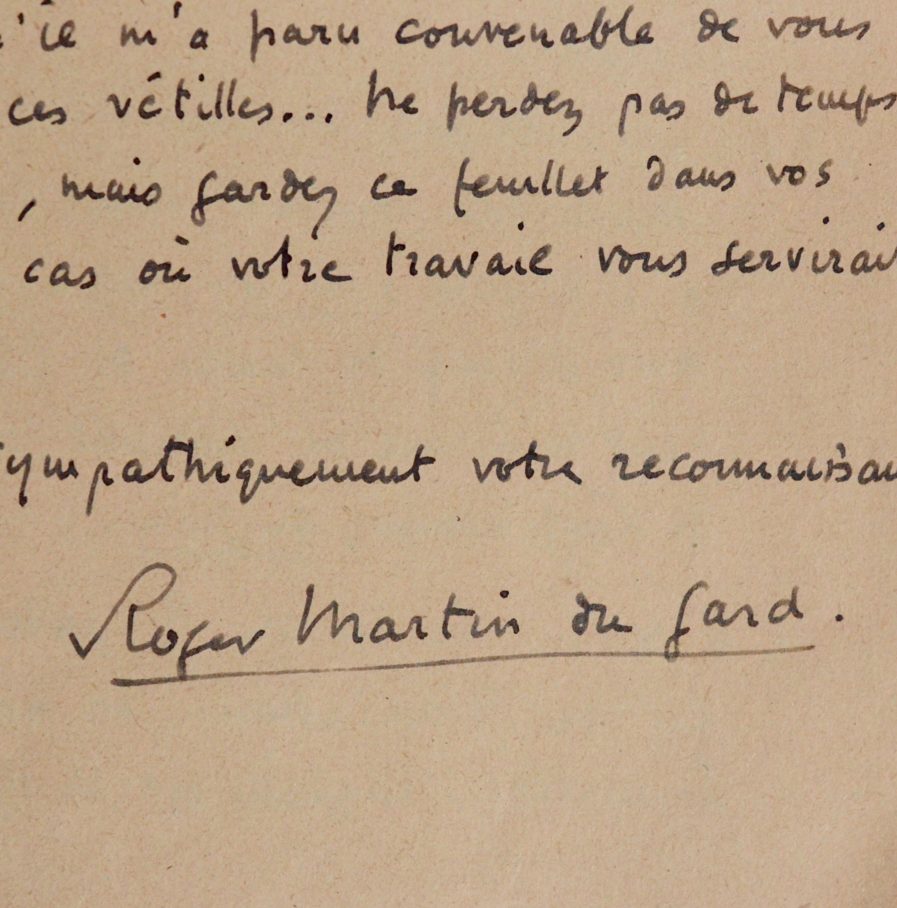 'il m'a paru convenable de vous
ces vétilles... Ne perdez pas de temps
, mais gardez ce feuillet dans vos
cas où votre travail vous servirai
sympathiquement votre reconnaissan
Roger Martin du Gard.